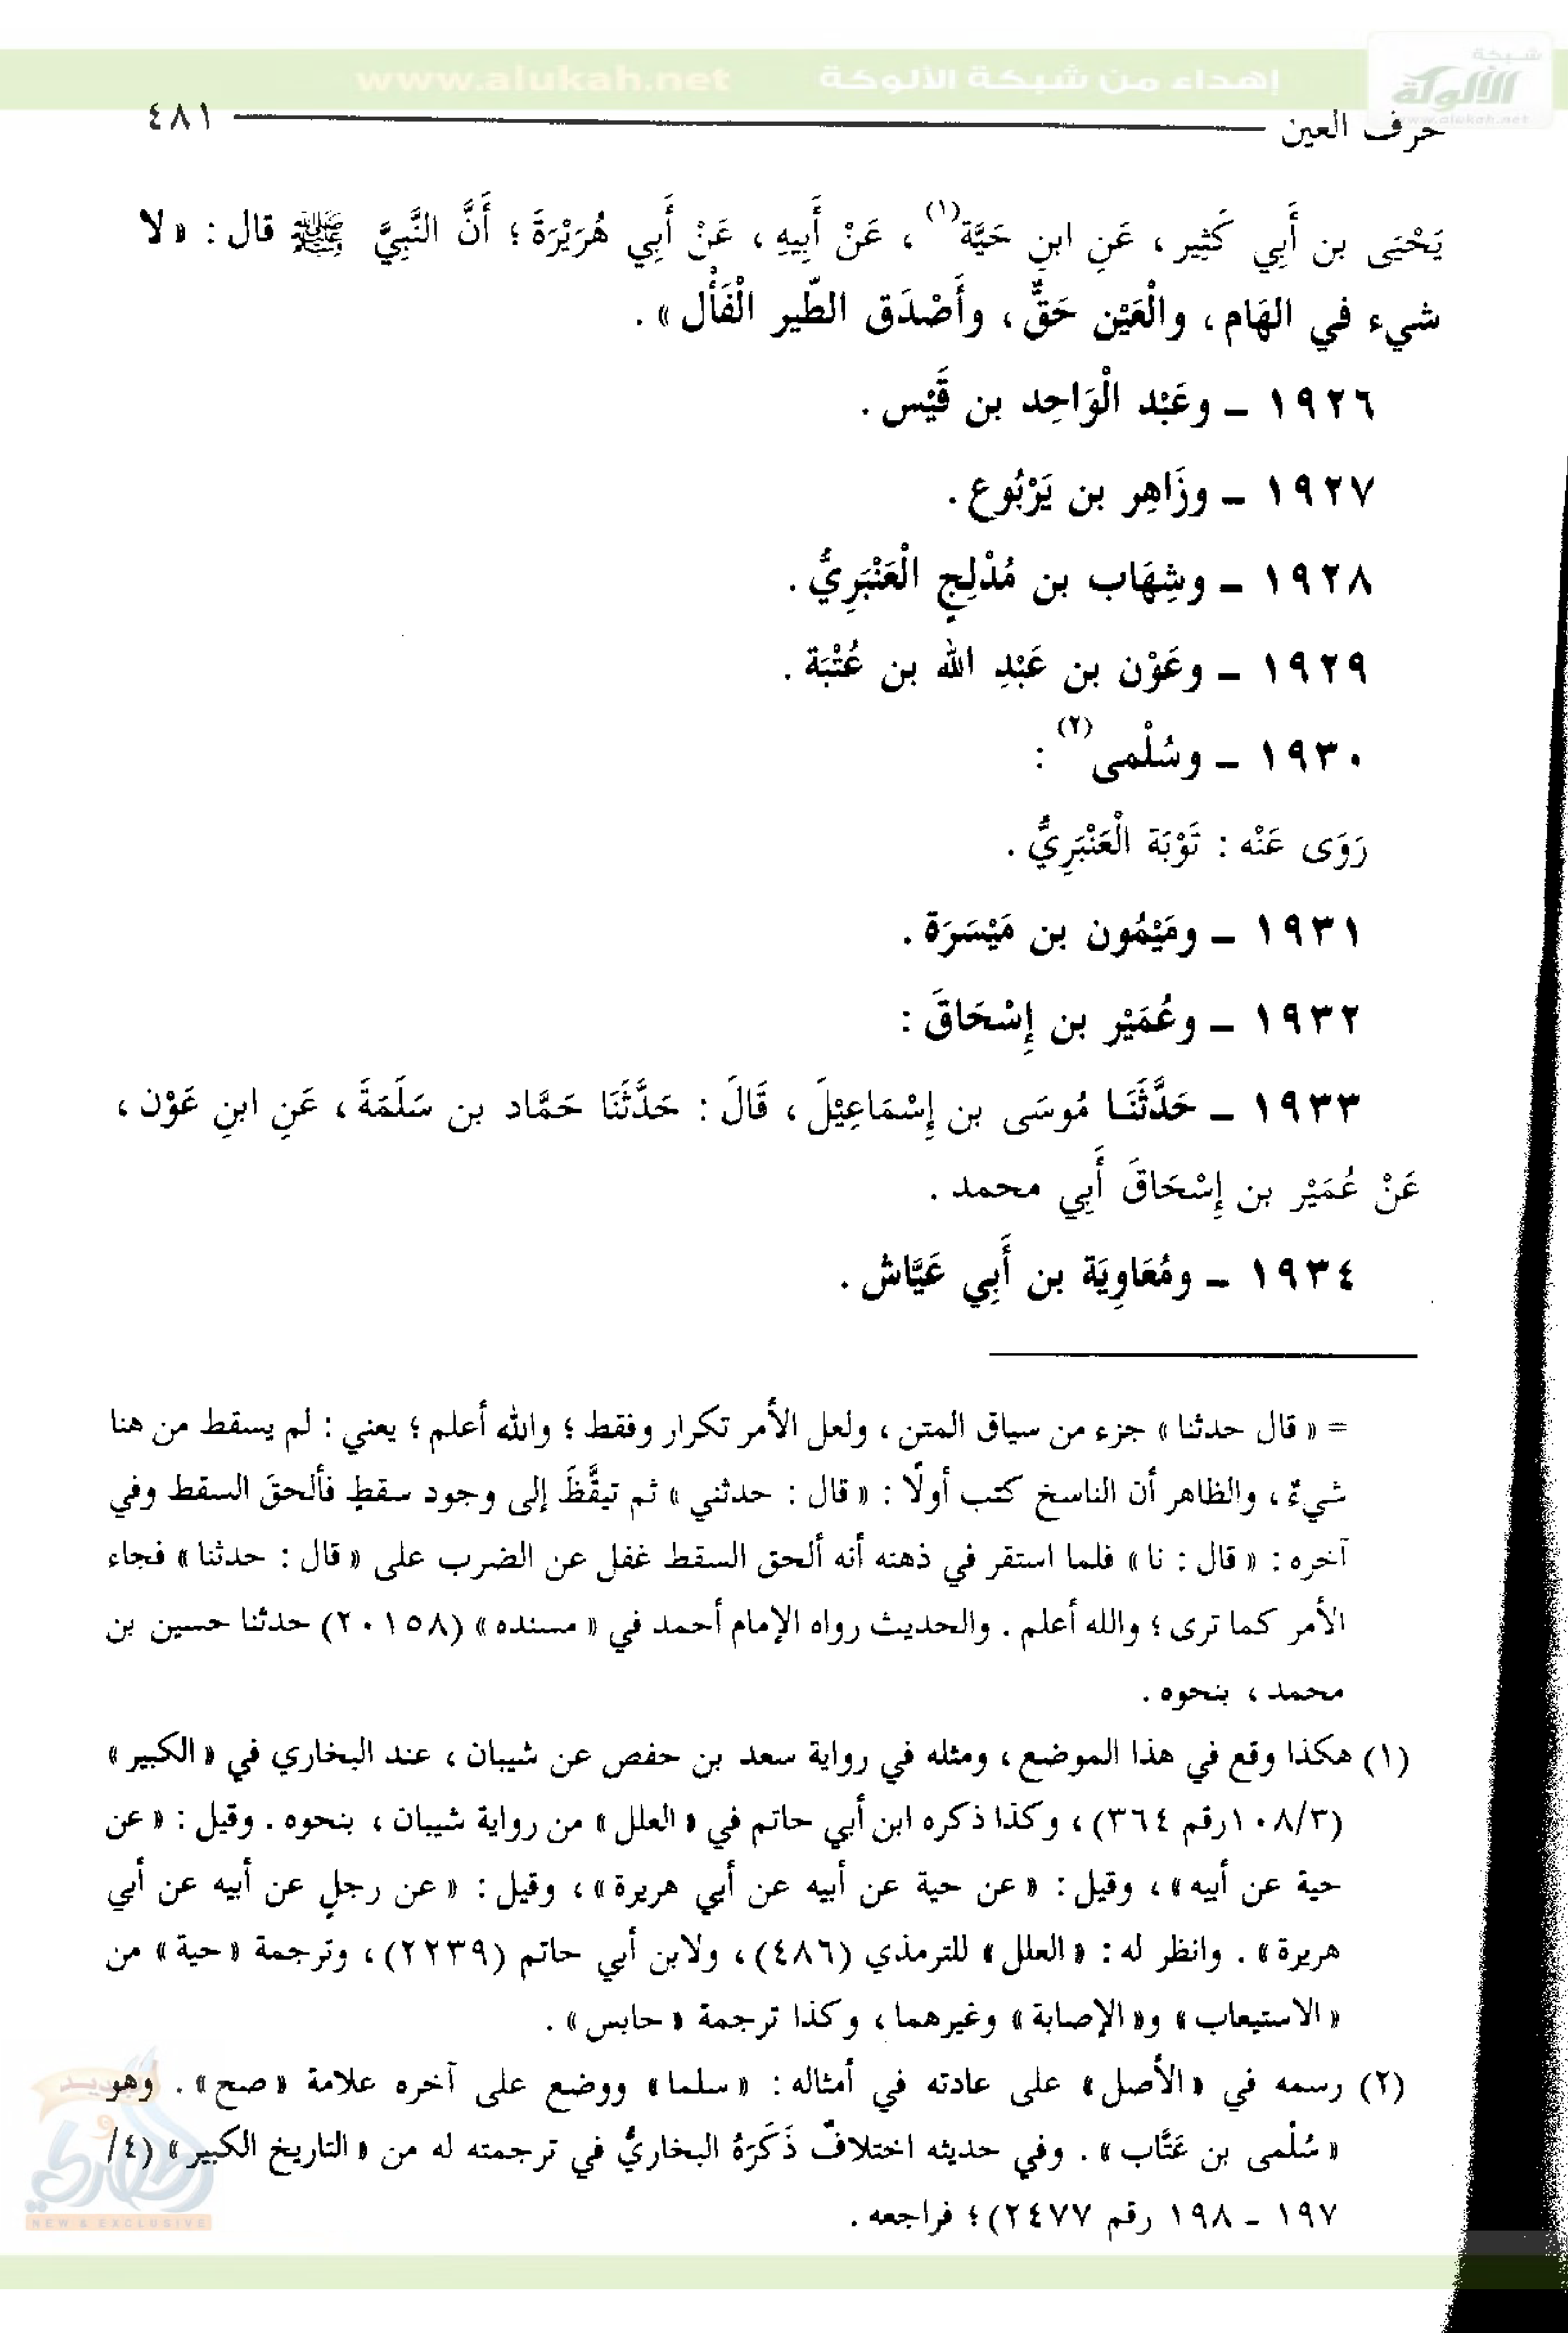 شبكة
الألوكة
www.alukah.net
إهداء من شبكة الألوكة www.alukah.net
حرف العين ٤٨١
يَحْيَى بن أَبِي كَثِير ، عَنِ ابنِ حَيَّة(١) ، عَنْ أَبِيهِ ، عَنْ أَبِي هُرَيْرَةَ ؛ أَنَّ النَّبِيَّ ﷺ قال : « لا
شيء في الهَام ، والْعَيْن حَقٌّ ، وأَصْدَق الطّير الْفَأْل » .
١٩٢٦ ـ وعَبْد الْوَاحِد بن قَيْس .
١٩٢٧ ـ وزَاهِر بن يَرْبُوع .
١٩٢٨ ـ وشِهَاب بن مُدْلِجٍ الْعَنْبَرِيُّ .
١٩٢٩ ـ وعَوْن بن عَبْدِ الله بن عُتْبَة .
١٩٣٠ ـ وسُلْمى(٢) :
رَوَى عَنْه : تَوْبَة الْعَنْبَرِيُّ .
١٩٣١ ـ ومَيْمُون بن مَيْسَرَة .
١٩٣٢ ـ وعُمَيْر بن إِسْحَاقَ :
١٩٣٣ ـ حَدَّثَنَا مُوسَى بن إِسْمَاعِيْلَ ، قَالَ : حَدَّثَنَا حَمَّاد بن سَلَمَةَ ، عَنِ ابنِ عَوْن ،
عَنْ عُمَيْر بن إِسْحَاقَ أَبِي محمد .
١٩٣٤ ـ ومُعَاوِيَة بن أَبِي عَيَّاش .
= « قال حدثنا » جزء من سياق المتن ، ولعل الأمر تكرار وفقط ؛ والله أعلم ؛ يعني : لم يسقط من هنا
شيءٌ ، والظاهر أن الناسخ كتب أولًا : « قال : حدثني » ثم تيقَّظَ إلى وجود سقطٍ فألحقَ السقط وفي
آخره : « قال : نا » فلما استقر في ذهنه أنه ألحق السقط غفل عن الضرب على « قال : حدثنا » فجاء
الأمر كما ترى ؛ والله أعلم . والحديث رواه الإمام أحمد في « مسنده » (٢٠١٥٨) حدثنا حسين بن
محمد ، بنحوه .
(١) هكذا وقع في هذا الموضع ، ومثله في رواية سعد بن حفص عن شيبان ، عند البخاري في « الكبير »
(٣/١٠٨رقم ٣٦٤) ، وكذا ذكره ابن أبي حاتم في « العلل » من رواية شيبان ، بنحوه . وقيل : « عن
حية عن أبيه » ، وقيل : « عن حية عن أبيه عن أبي هريرة » ، وقيل : « عن رجلٍ عن أبيه عن أبي
هريرة » . وانظر له : « العلل » للترمذي (٤٨٦) ، ولابن أبي حاتم (٢٢٣٩) ، وترجمة « حية » من
« الاستيعاب » و« الإصابة » وغيرهما ، وكذا ترجمة « حابس » .
(٢) رسمه في « الأصل » على عادته في أمثاله : « سلما » ووضع على آخره علامة « صح » . وهو
« سُلْمى بن عَتَّاب » . وفي حديثه اختلافٌ ذَكَرَهُ البخاريُّ في ترجمته له من « التاريخ الكبير » (٤/
١٩٧ ـ ١٩٨ رقم ٢٤٧٧) ؛ فراجعه .
NEW & EXCLUSIVE